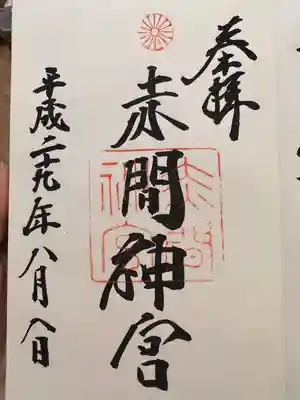 奉拝
赤間神宮
平成二十九年八月八日